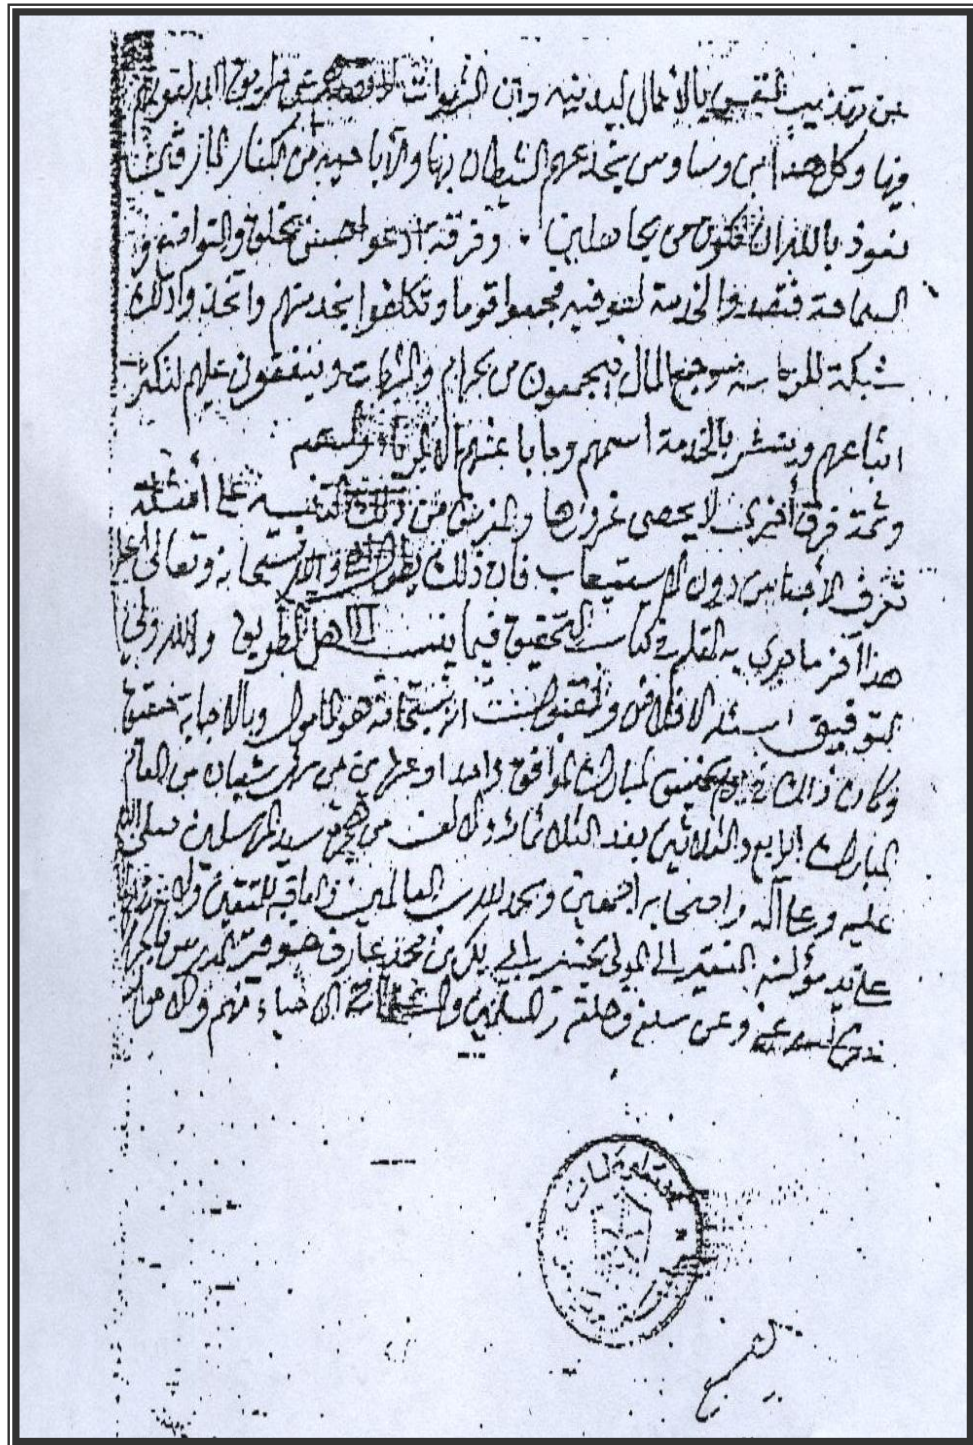 عن تهذيب النفس بالأعمال البدنيه وان الشهوات
فيها وكل هذا من وساوس يخدعهم الشيطان بها والاباحيه من الكفار المارقين
نعوذ بالله ان نكون من الجاهلين . وفرقة ادعوا حسن الخلق والتواضع و
السماحة فتصدوا لخدمة الصوفيه فجمعوا قوما وتكلفوا بخدمتهم واتخذوا ذلك
شبكة للرياسة وجمع المال فيجمعون من الحرام والشبهات وينفقون عليهم لتكثر
اتباعهم وينتشر بالخدمة اسمهم وما باعثهم الا الرياء والسمعه
وثمة فرق أخرى لا يحصى غرورها والغرض من ذلك التنبيه على أمثلة
تعرف الأجناس دون الاستيعاب فان ذلك يطول والله سبحانه وتعالى اعلم
هذا آخر ما جرى به القلم في كتاب التحقيق فيما ينسب لاهل الطريق والله ولي
التوفيق اسئله الاخلاص والقبول انه سبحانه هو المأمول وبالاجابة حقيق
وكان ذلك في يوم الخميس المبارك الموافق واحدا وعشرين من شهر شعبان من العام
المبارك الرابع والثلاثين بعد الثلاثمائة والالف من هجرة سيد المرسلين صلى الله
عليه وعلى آله واصحابه اجمعين والحمد لله رب العالمين والعاقبة للمتقين
على يد مؤلفه الفقير الى المولى الخبير ابي بكر بن محمد عارف خوقير المدرس بالحرم
عنه وعن سلفه وخلفه والمسلمين الاحياء منهم والاموات